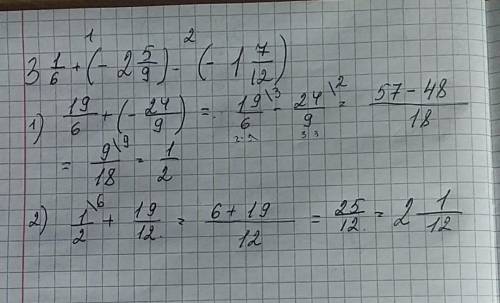 3 1/6 +¹ (- 2 5/9) -² (- 1 7/12)
1) 19/6 + (- 24/9) = 19\3/6 - 24\2/9 = 57 - 48/18
= 9\9/18 = 1/2
2) 1\6/2 + 19/12 = 6 + 19/12 = 25/12 = 2 1/12